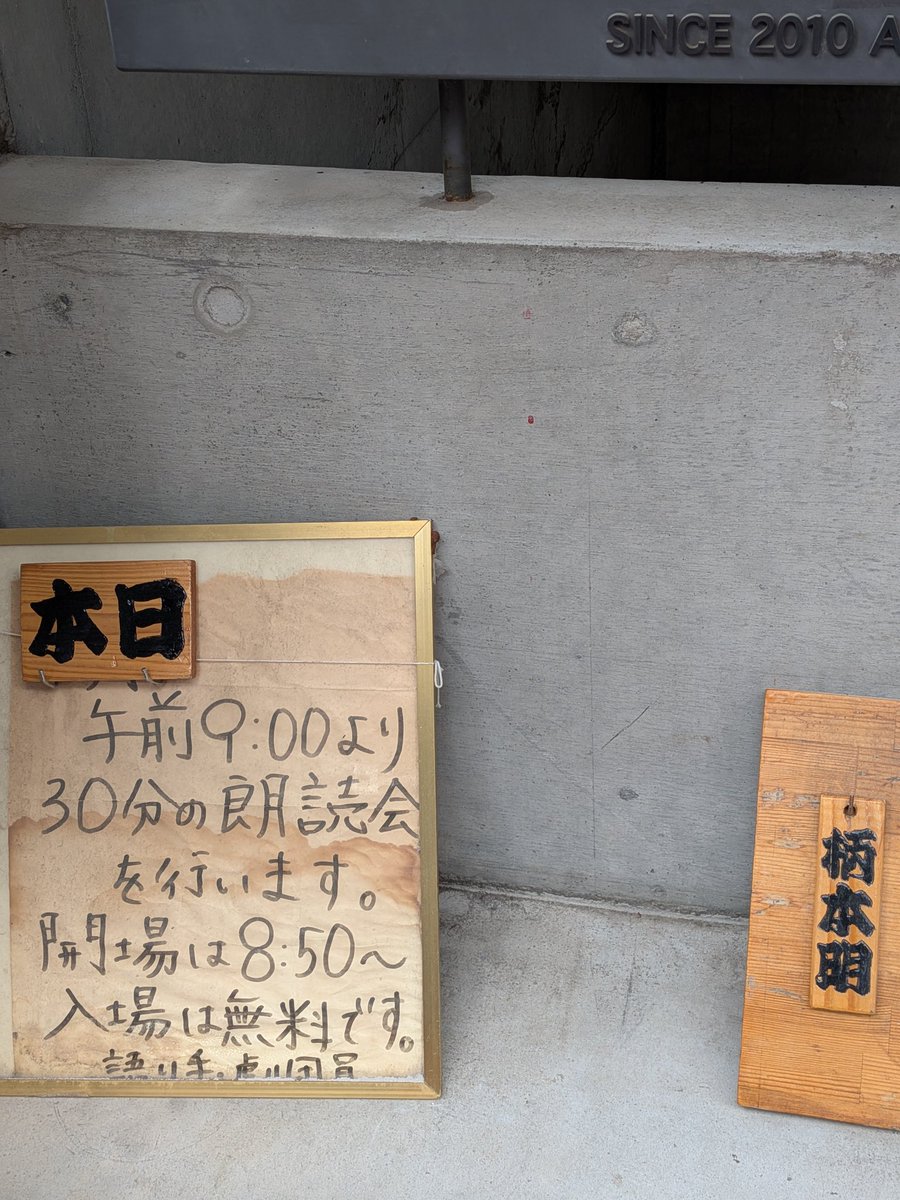 SINCE 2010 A
本日
午前9:00より
30分の朗読会
を行います。
開場は8:50～
入場は無料です。
語り手:劇団員
柄本明